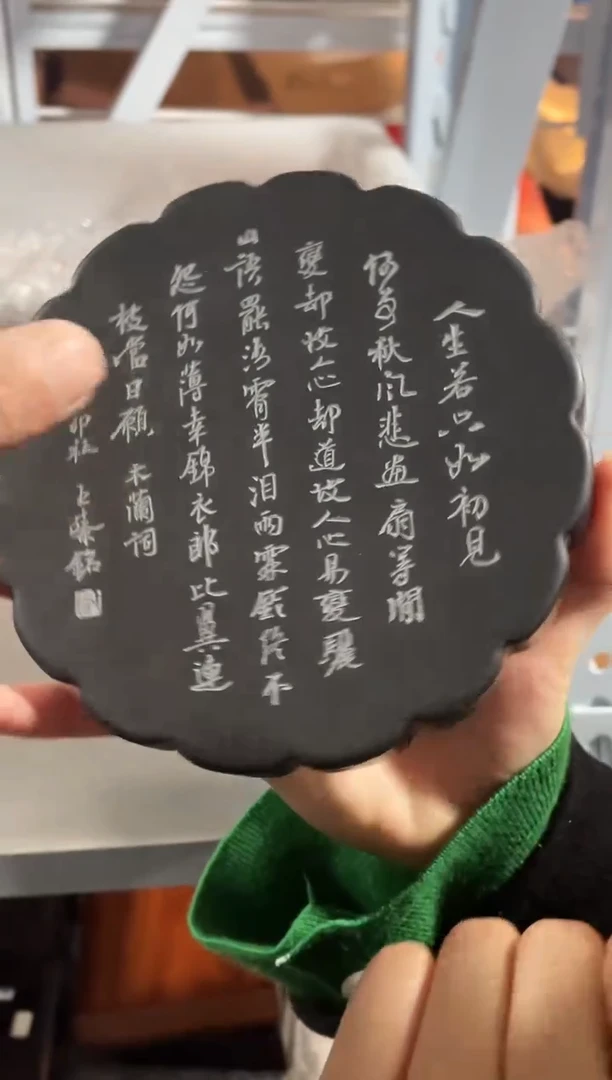 人生若只如初見
何事秋风悲畫扇等閒
變却故人心却道故人心易變驪
山语罷清宵半泪雨霖鈴終不
怨何如薄幸錦衣郎比翼連
枝當日願 木蘭詞
銘